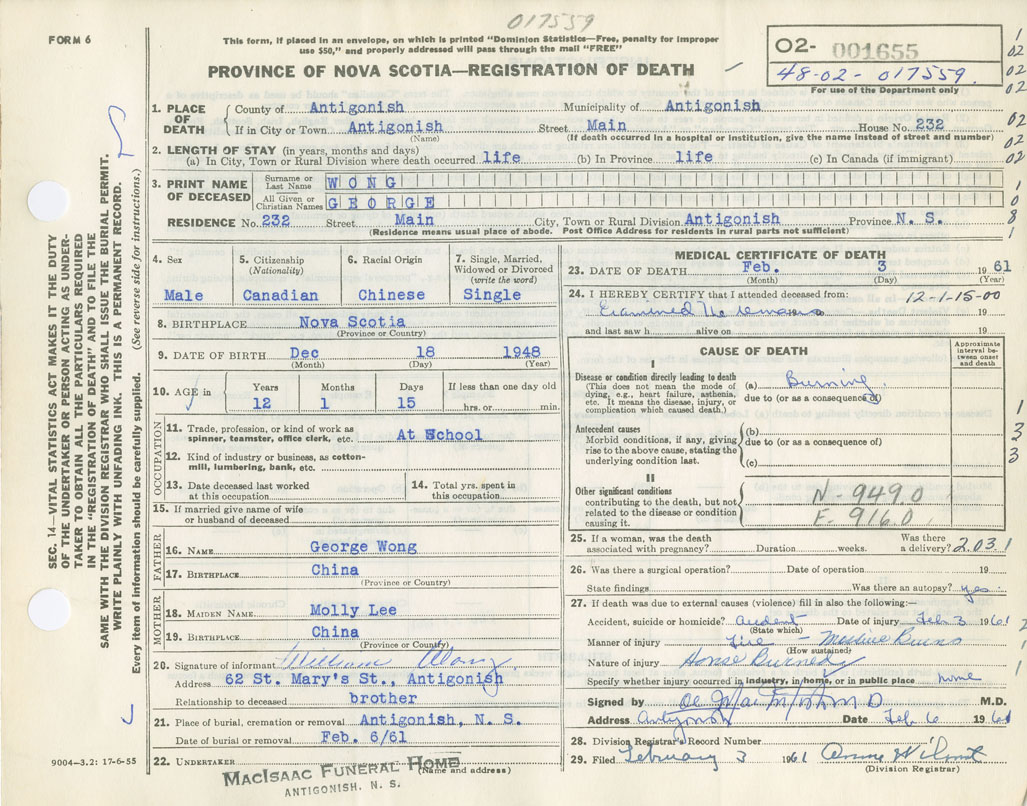 017559
FORM 6
This form, if placed in an envelope, on which is printed "Dominion Statistics—Free, penalty for improper
use $50," and properly addressed will pass through the mail "FREE"
PROVINCE OF NOVA SCOTIA—REGISTRATION OF DEATH
02- 001655
48-02- 017559
For use of the Department only
SEC. 14—VITAL STATISTICS ACT MAKES IT THE DUTY
OF THE UNDERTAKER OR PERSON ACTING AS UNDER-
TAKER TO OBTAIN ALL THE PARTICULARS REQUIRED
IN THE "REGISTRATION OF DEATH" AND TO FILE THE
SAME WITH THE DIVISION REGISTRAR WHO SHALL ISSUE THE BURIAL PERMIT.
WRITE PLAINLY WITH UNFADING INK. THIS IS A PERMANENT RECORD.
Every item of information should be carefully supplied. (See reverse side for instructions.)
1. PLACE OF DEATH
County of Antigonish Municipality of Antigonish
If in City or Town Antigonish Street Main House No. 232
(Name) (If death occurred in a hospital or institution, give the name instead of street and number)
2. LENGTH OF STAY (in years, months and days)
(a) In City, Town or Rural Division where death occurred life (b) In Province life (c) In Canada (if immigrant)
3. PRINT NAME OF DECEASED
Surname or Last Name WONG
All Given or Christian Names GEORGE
RESIDENCE No. 232 Street Main City, Town or Rural Division Antigonish Province N. S.
(Residence means usual place of abode. Post Office Address for residents in rural parts not sufficient)
4. Sex
Male
5. Citizenship (Nationality)
Canadian
6. Racial Origin
Chinese
7. Single, Married, Widowed or Divorced (write the word)
Single
8. BIRTHPLACE Nova Scotia
(Province or Country)
9. DATE OF BIRTH Dec 18 1948
(Month) (Day) (Year)
10. AGE in Years Months Days If less than one day old
12 1 15 hrs. or min.
OCCUPATION
11. Trade, profession, or kind of work as
spinner, teamster, office clerk, etc. At School
12. Kind of industry or business, as cotton-
mill, lumbering, bank, etc.
13. Date deceased last worked
at this occupation
14. Total yrs. spent in
this occupation
15. If married give name of wife
or husband of deceased
FATHER
16. NAME George Wong
17. BIRTHPLACE China
(Province or Country)
MOTHER
18. MAIDEN NAME Molly Lee
19. BIRTHPLACE China
(Province or Country)
20. Signature of informant William Wong
Address 62 St. Mary's St., Antigonish
Relationship to deceased brother
21. Place of burial, cremation or removal Antigonish, N. S.
Date of burial or removal Feb. 6/61
22. UNDERTAKER
(Name and address)
MACISAAC FUNERAL HOME
ANTIGONISH, N. S.
9004—3.2: 17-6-55
MEDICAL CERTIFICATE OF DEATH
23. DATE OF DEATH Feb. 3 1961
(Month) (Day) (Year)
24. I HEREBY CERTIFY that I attended deceased from: 12-1-15-00
Examined the remains 19
19
and last saw h alive on 19
CAUSE OF DEATH
Approximate interval between onset and death
I
Disease or condition directly leading to death
(This does not mean the mode of
dying, e.g., heart failure, asthenia,
etc. It means the disease, injury, or
complication which caused death.)
(a) Burning
due to (or as a consequence of)
Antecedent causes
Morbid conditions, if any, giving
rise to the above cause, stating the
underlying condition last.
(b)
due to (or as a consequence of)
(c)
II
Other significant conditions
contributing to the death, but not
related to the disease or condition
causing it.
N-9490
E-9160
25. If a woman, was the death
associated with pregnancy? Duration weeks. Was there a delivery? 2.03.1
26. Was there a surgical operation? Date of operation 19
State findings Was there an autopsy? yes
27. If death was due to external causes (violence) fill in also the following:—
Accident, suicide or homicide? accident Date of injury Feb 3 1961
(State which)
Manner of injury Fire - Massive Burns
(How sustained)
Nature of injury House Burned
Specify whether injury occurred in industry, in home, or in public place home
Signed by M.D.
Address Antigonish Date Feb 6 1961
28. Division Registrar's Record Number
29. Filed February 3 1961
(Division Registrar)
1
02
02
02
02
02
02
1
0
8
1
1
3
3
2
1
1